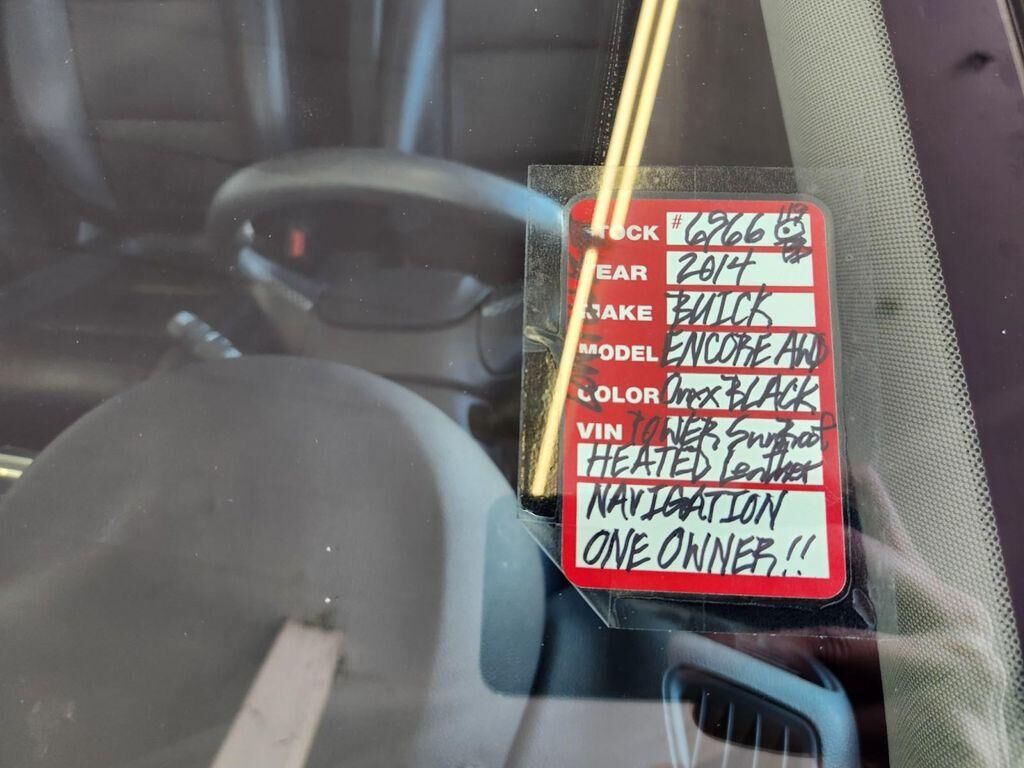 STOCK # 6966
YEAR 2014
MAKE BUICK
MODEL ENCORE AWD
COLOR Onyx BLACK
VIN POWER Sunroof
HEATED Leather
NAVIGATION
ONE OWNER!!